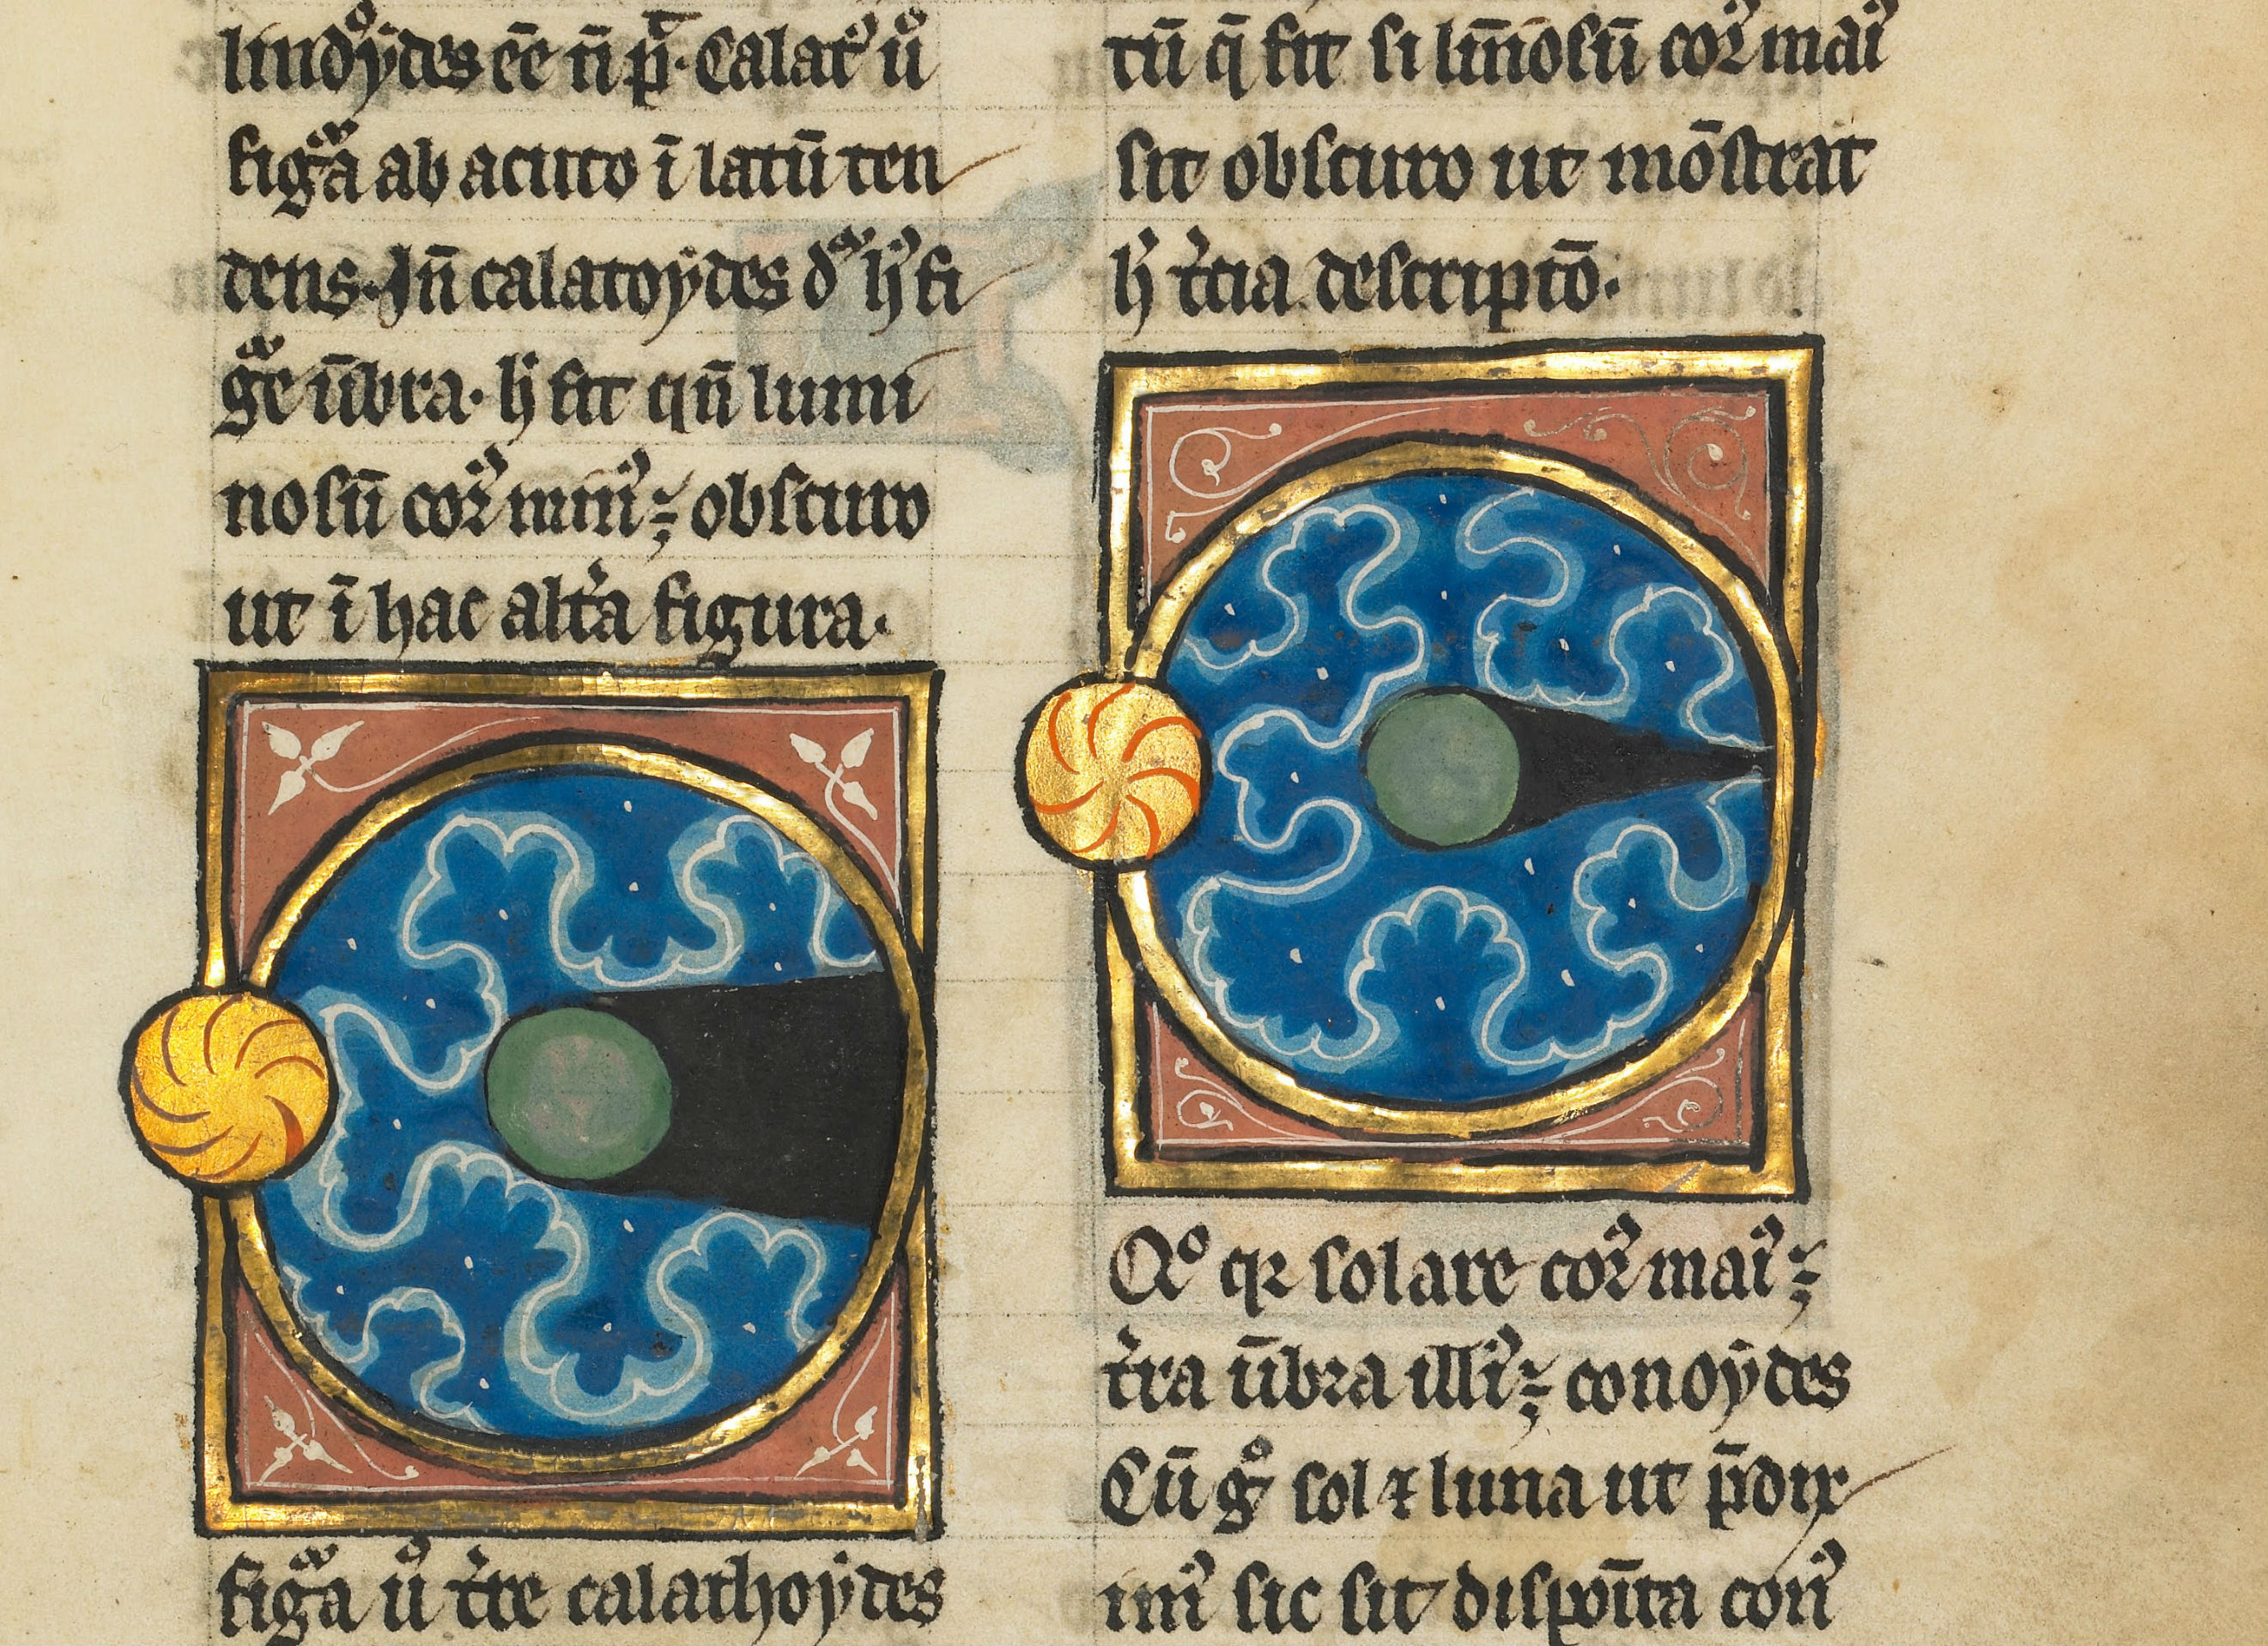 lindoẏdes ēē n̄ p̄. Calat᷒ u̾
fig̃a ab acuto ī latū ten
dens. Jn̄ calatoẏdes d̃ h᷒ fi
g̃e ūbra. h᷒ fit qn̄ lumi
nosū cor᷒ min᷒ ÷ obscuro
ut ī hac alt̾a figura.
fig̃a u̾ t̾re calathoẏdes
tū q̄ fit si lm̄osū cor᷒ mai᷒
sit obscuro ut mōstrat
h᷒ t̾cia descriptō.
Qº qꝛ solare cor᷒ mai᷒ ÷
t̾ra ūbra illi᷒ ÷ conoẏdes
Cū gͦ sol ⁊ luna ut p̄dix
im᷒ sic sit disporīta con᷒